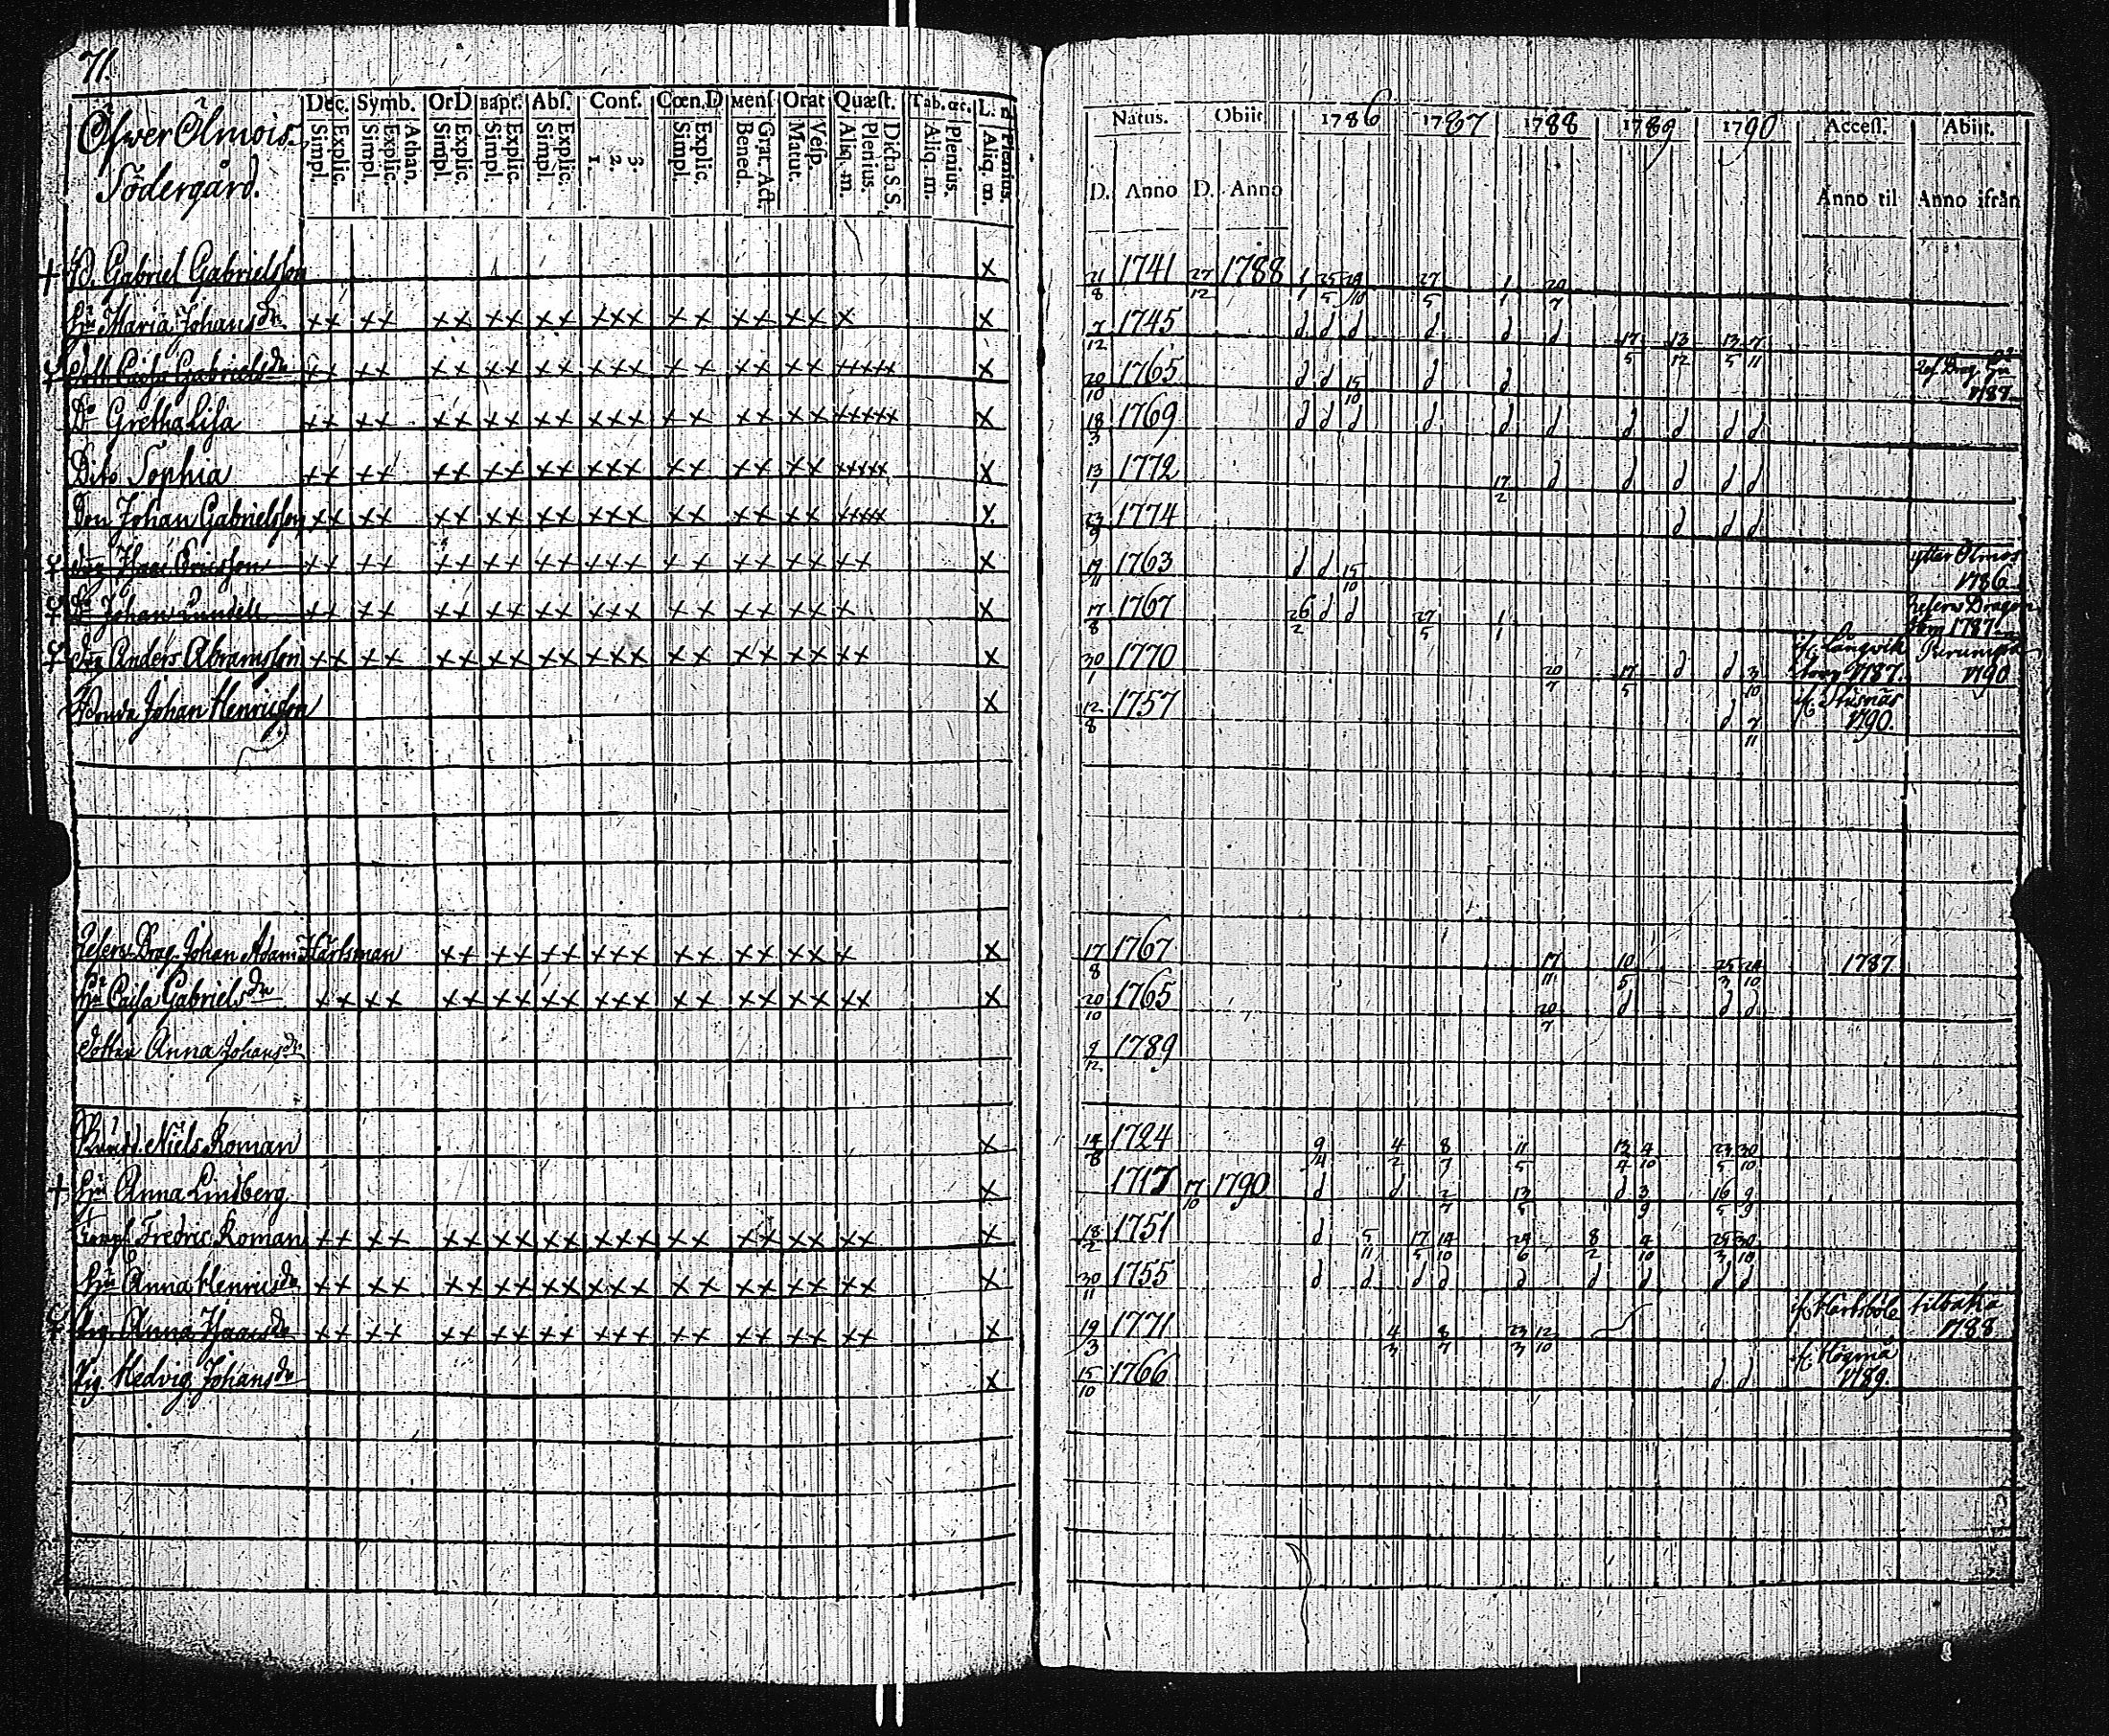 71.
Öfwer Ölmois
Södergård.
Dec. Symb. OrD Bapt. Abs. Conf. Cœn.D Mens Orat Quæst. Tab.œc. L. n.
Simpl. Explic. Simpl. Explic. Athan. Simpl. Explic. Simpl. Explic. Simpl. Explic. 1. 2. 3. Simpl. Explic. Bened. Grat. Act. Matut. Vesp. Aliq. m. Plenius. Dicta S.S. Aliq. m. Plenius. Aliq. m. Plenius.
Natus. Obiit 1786 1787 1788 1789 1790 Access. Abiit.
D. Anno D. Anno Anno til Anno ifrån
Gabriel Gabrielsson x 21/8 1741 27/12 1788 1/1 25/5 27/5 1/1 20/7
Hu Maria Johansdr xx xx xx xx xx xxx xx xx xx x x 7/12 1745 d d d d d d 17/5 13/12 13/5 7/11
Dott Cajsa Gabrielsdr xx xx xx xx xx xxx xx xx xx xxxxx x 20/10 1765 d d 15/10 d d Ref. Drag. Hu 1787
Do Gretha Lisa xx xx xx xx xx xxx xx xx xx xxxxx x 18/3 1769 d d d d d d d d d d
Dito Sophia xx xx xx xx xx xxx xx xx xx xxxxx x 13/1 1772 17/2 d d d d d
Son Johan Gabrielsson xx xx xx xx xx xxx xx xx xx xxxxx x 23/9 1774 d d d
Isac Ericsson xx xx xx xx xx xxx xx xx xx xx x 1763 d d 15/10 ytter Ölmos 1786
Johan Lundell xx xx xx xx xx xxx xx xx xx x x 17/8 1767 26/2 d d 27/5 1/1 Reserv Dragon 1787
Anders Abramsson xx xx xx xx xx xxx xx xx xx xx x 30/1 1770 20/7 17/5 d d 3/10 if. Långvik 1787. 1790
Johan Henricsson x 12/8 1757 d 7/11 if. Stusnäs 1790.
Reserv Drag. Johan Adam Karlsman xx xx xx xxx xx xx xx x x 17/8 1767 17/11 10/5 25/3 24/10 1787
Hu Cajsa Gabrielsdr xx xx xx xx xx xxx xx xx xx xx x 20/10 1765 20/7 d d d
Dotter Anna Johansdr 9/12 1789
Niels Roman x 14/8 1724 9/4 4/2 8/7 11/5 13/4 4/10 23/5 30/10
Hu Anna Lindberg x 1717 17/10 1790 d d 2/7 13/5 d 3/9 16/5 9/9
Fredric Roman xx xx xx xx xx xxx xx xx xx xx x 18/2 1751 d 5/11 17/5 14/10 24/6 8/2 4/10 25/3 30/10
Hu Anna Henricsdr xx xx xx xx xx xxx xx xx xx xx x 30/11 1755 d d d d d d d d d
Pig. Anna Isacsdr xx xx xx xx xx xxx xx xx xx xx x 19/3 1771 4/3 8/7 23/3 12/10 if. Karsböle tilbaka 1788
Pig. Hedvig Johansdr x 15/10 1766 d d if. Högmå 1789